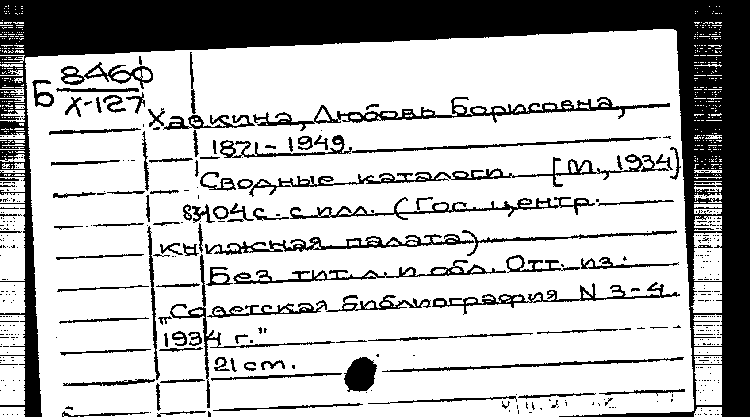 Б 8460
Х-127
Хавкина, Любовь Борисовна,
1871-1949.
Сводные каталоги. [М., 1934]
83-104 с. с илл. (Гос. центр.
книжная палата)
Без тит. л. и обл. Отт. из:
„Советская библиография N 3-4
1934 г."
21 cm.